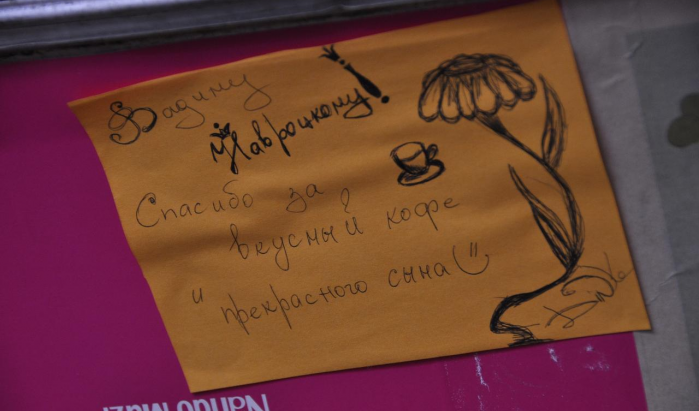 Вадиму
Навроцкому!
Спасибо за
вкусный кофе
и прекрасного сына
Nando